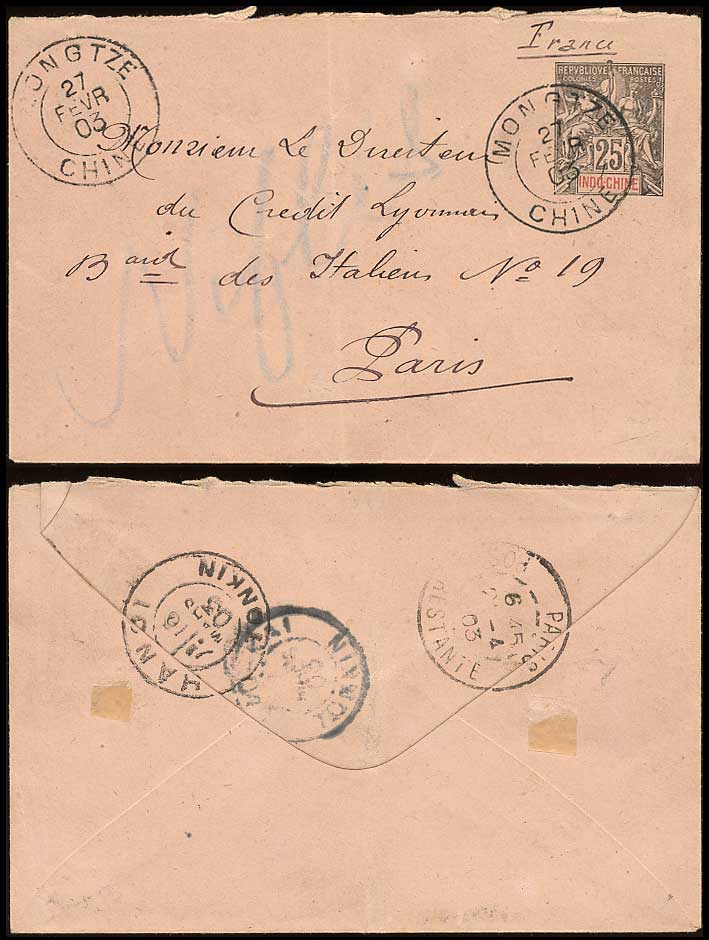 France
MONGTZE
27
FEVR
03
CHINE
REPVBLIQVE FRANÇAISE
COLONIES POSTES
25
INDO-CHINE
MONGTZE
27
FEVR
03
CHINE
Monsieur Le Directeur
du Credit Lyonnais
Bard des Italiens No 19
Paris
HANOI
TONKIN
03
TONKIN
03
PARIS
6 45
-4
03
RESTANTE